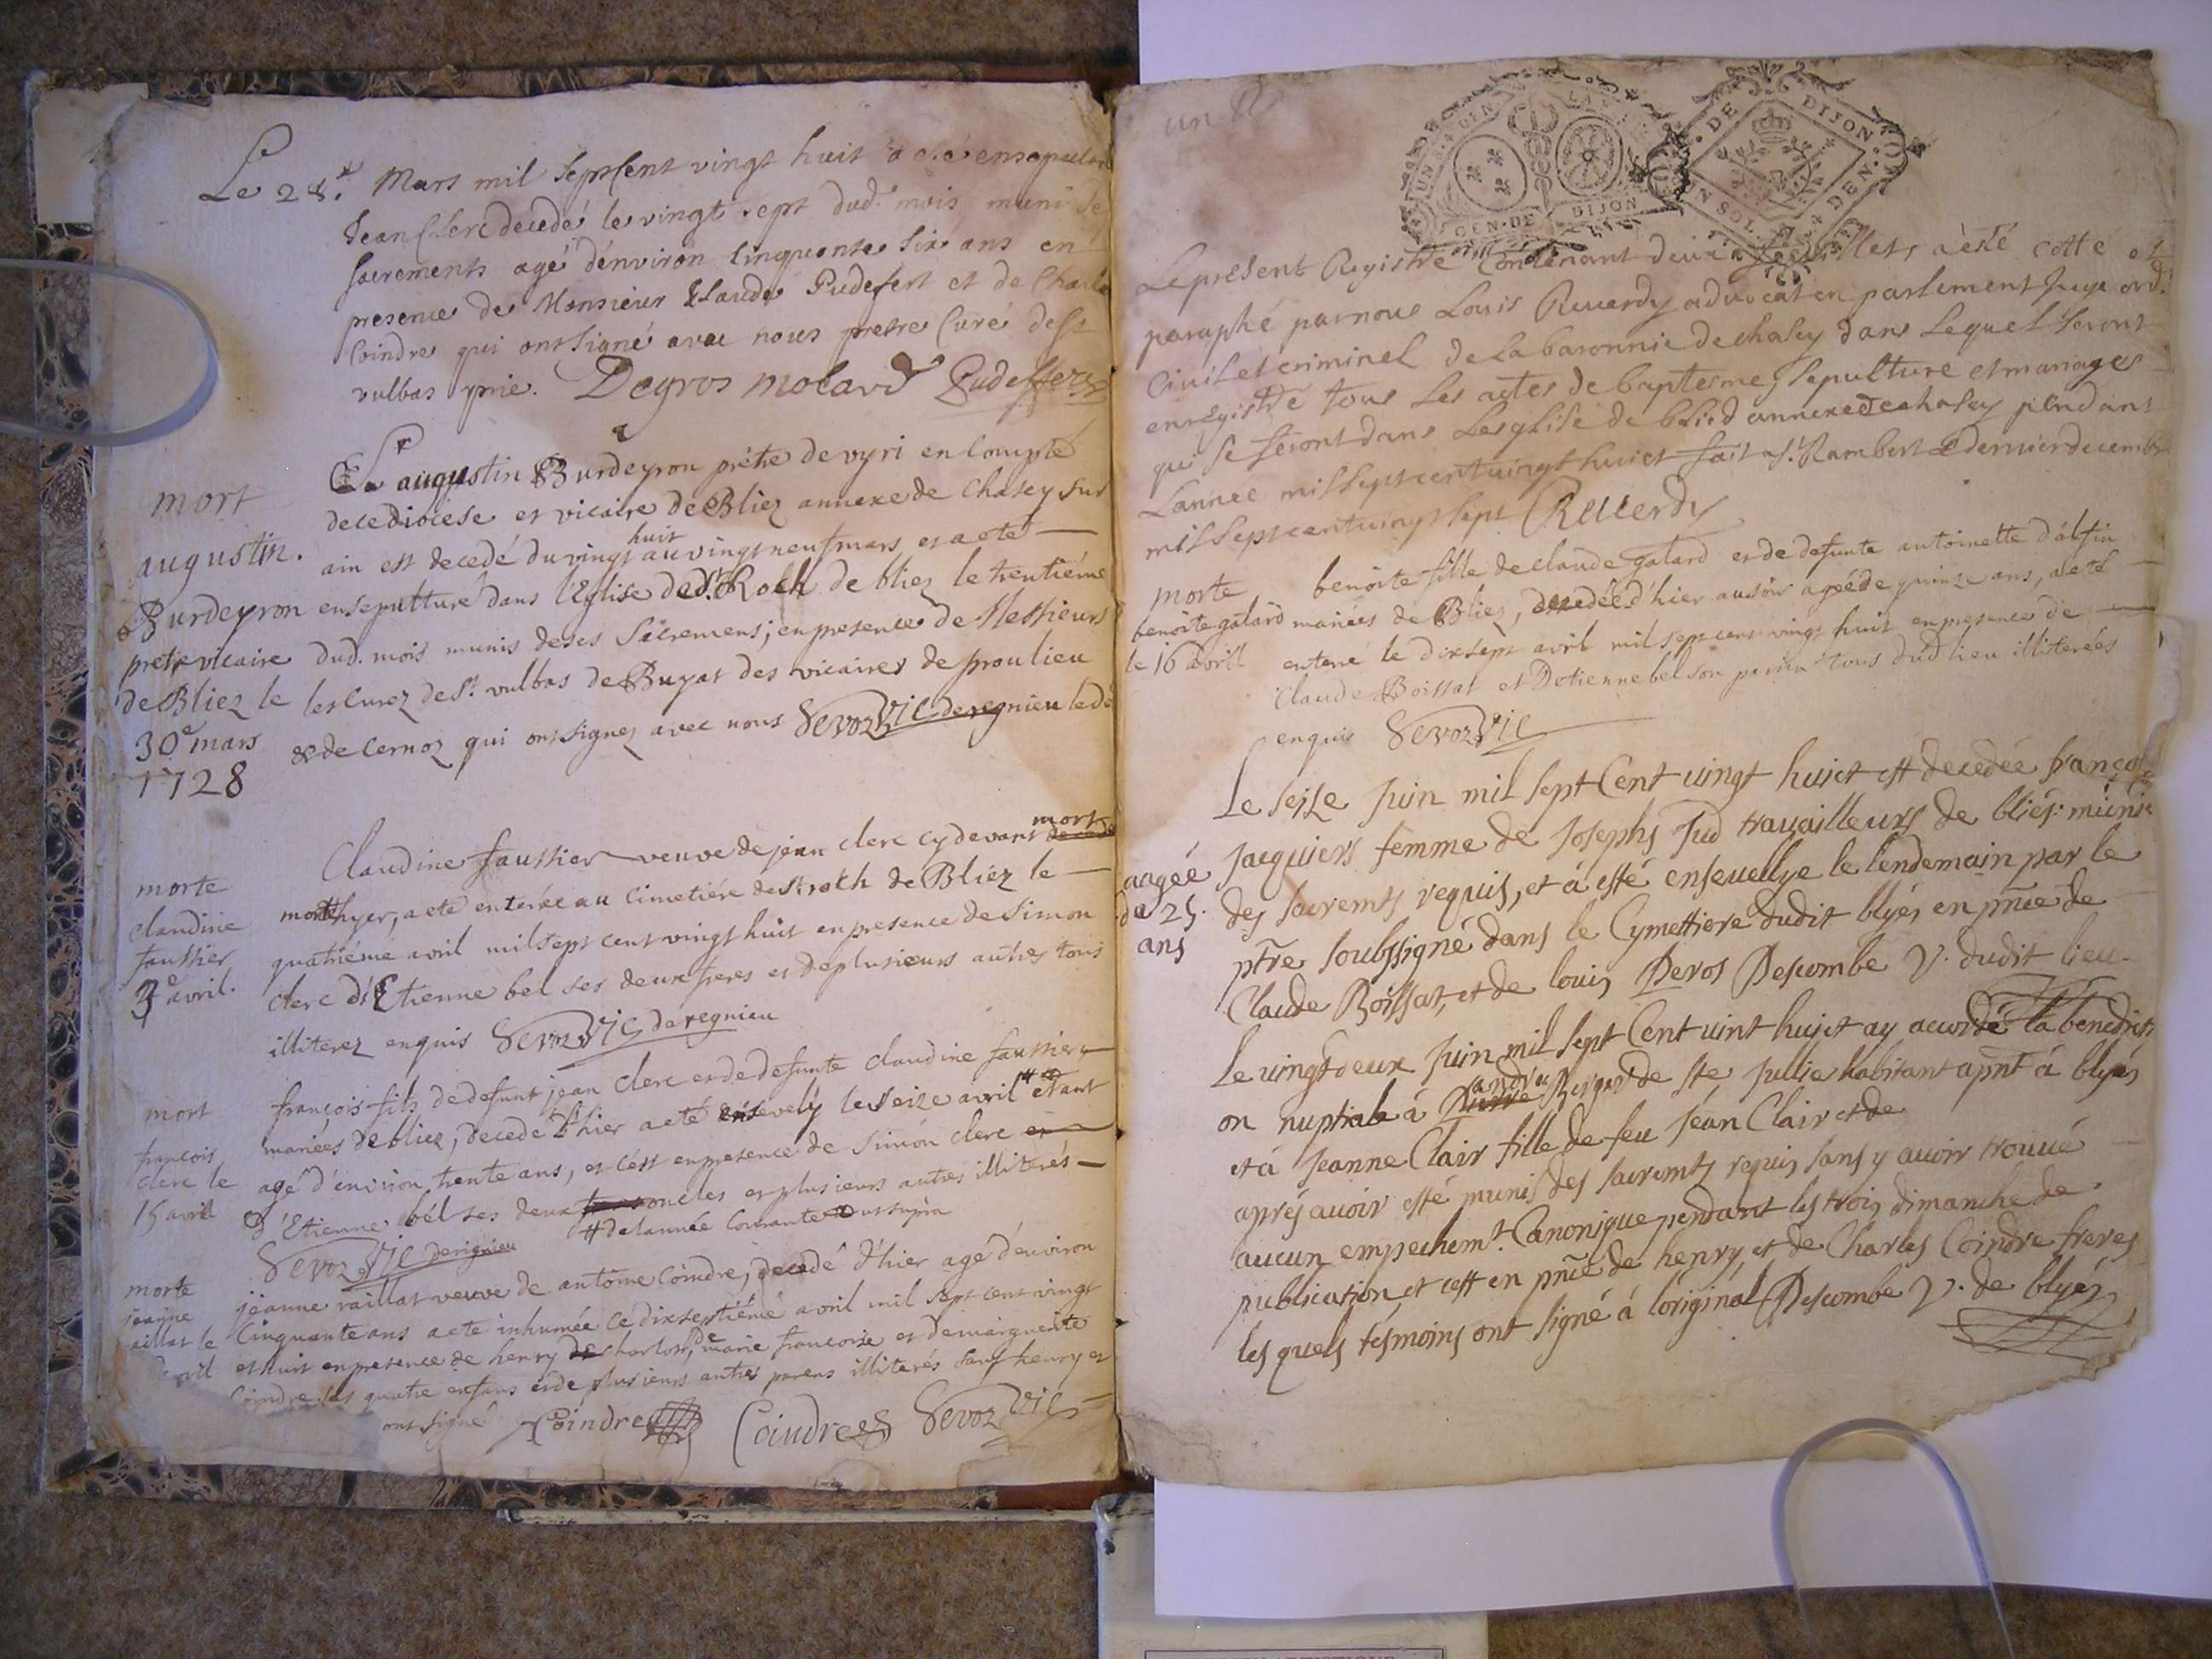 Le 28.e Mars mil sept Cent vingt huit a eté ensepulturé
Jean Clerc decedé le vingt sept dud. mois muni de
sacrements agé d'environ Cinquante six ans en
presence de Monsieur Claude Pudefert et de Charle
Coindre qui ont signé avec nous pretre Curé de St
vulbas
Degros molard Pudeffert
mort
augustin.
Burdeyron
pretre vicaire
de Bliez le
30e mars
1728
Sr augustin Burdeyron prétre de vyri en Compté
de ce diocese et vicaire de Bliez annexe de Chasey sur
huit
ain est decedé du vingt au vingt neuf mars et a eté
ensepulturé dans l'Eglise de St. Roch de bliez le trentiéme
dud. mois munis de ses sacremens; en presence de Messieurs
les Curez de St. vulbas de Buyat des vicaires de proulieu
& de Cernoz qui ont signez avec nous Sevoz Vic deregnieu
morte
claudine
faussier
3e avril.
mort
Claudine faussier veuve de jean clerc cy devant decede
morte hyer, a eté enterée au cimetiére de St roch de Bliez le
quatriéme avril mil sept cent vingt huit en presence de Simon
clerc d'Etienne bel ses deux freres et de plusieurs autres tous
illiterez enquis Sevoz Vic deregnieu
mort
françois
clerc le
15 avril
françois fils de defunt jean clerc et de defunte claudine faussier
mariées de bliez, decedé d'hier a eté ensevely le seize avril # étant
agé d'environ trente ans, et c'est en presence de Simon clerc et
d'Etienne bél ses deux oncles et plusieurs autres illiterés
# de l'année Courante ut supra
Sevoz Vic derignieu
morte
jeanne
aillat le
avril
jeanne raillat veuve de antoine Coindre, decedé d'hier agé d'environ
Cinquante ans a eté inhumée ce dixseptiéme avril mil sept cent vingt
et huit en presence de henry de charlot, de marie françoise et de marguerite
Coindre ses quatre enfans et de plusieurs autres parens illiterés sauf henry et
ont signé Coindre Coindre Sevoz Vic
un
GEN. DE DIJON
DE DIJON
UN SOL. 4 DEN.
Le present Registre Contenant deux feuillets a esté cotté et
paraphé par nous Louis Reverdy advocat en parlement Juge ord.
Civil et criminel de la baronnie de chasey dans Lequel seront
enregistré tous Les actes de baptesme, sepulture et mariages
qui se feront dans Lesglise de blied annexe de chasey pendant
Lannée mil sept cent vingt huict fait a St. Rambert Le dernier decembre
mil sept cent vingt sept Reverdy
morte
benoite galard
le 16 avrill
benoite fille de claude galard et de defunte antoinette d'alfin
mariées de Bliez, decedée d'hier au soir agée de quinze ans, a eté
enterré le dixsept avril mil sept cent vingt huit en presence de
Claude Boissat et d'etienne bel son parrin tous dud lieu illiterées
enquis Sevoz Vic
aagée
de 25.
ans
Le seise Juin mil sept Cent vingt huict est decedée françoi
Jacquiers femme de Josephs Jud travailleurs de bliés: munie
des sacremts requis, et à esté ensevellye le lendemain par le
ptre soubssigné dans le Cymettiere dudit blyés en pnce de
Claude Boissat, et de louis Deros Descombe V. dudit lieu
Le vingt deux Juin mil sept Cent vint huict ay accordé la benedicti
on nuptiale à Pierre de Ste Jullie habitant apnt à blyés
et à Jeanne Clair fille de feu Jean Clair et de
aprés avoir esté munis des sacremts requis sans y avoir trouvé
aucun empechemt. Canonique pendant les trois dimanche de
publication, et cest en pnce de henry, et de Charles Coindre freres
les quels tesmoins ont signé à lóriginal Descombe V. de blyés